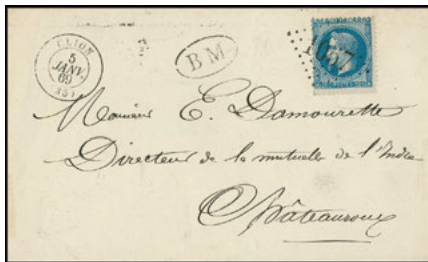 CLION
5
JANV.
69
(35)
BM
1057
Monsieur E. Damourette
Directeur de la mutuelle de l'Indre
Châteauroux